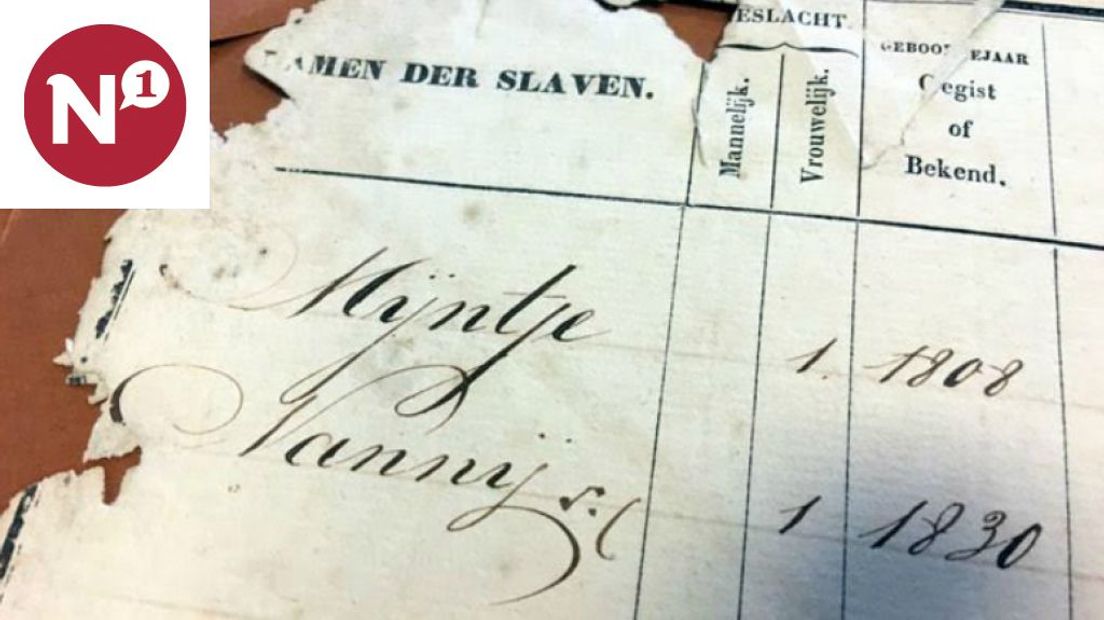 N1
AMEN DER SLAVEN.
ESLACHT.
Mannelijk.
Vrouwelijk.
GEBOO EJAAR
egist
of
Bekend.
Mÿntje 1. 1808
Nannÿ 1 1830